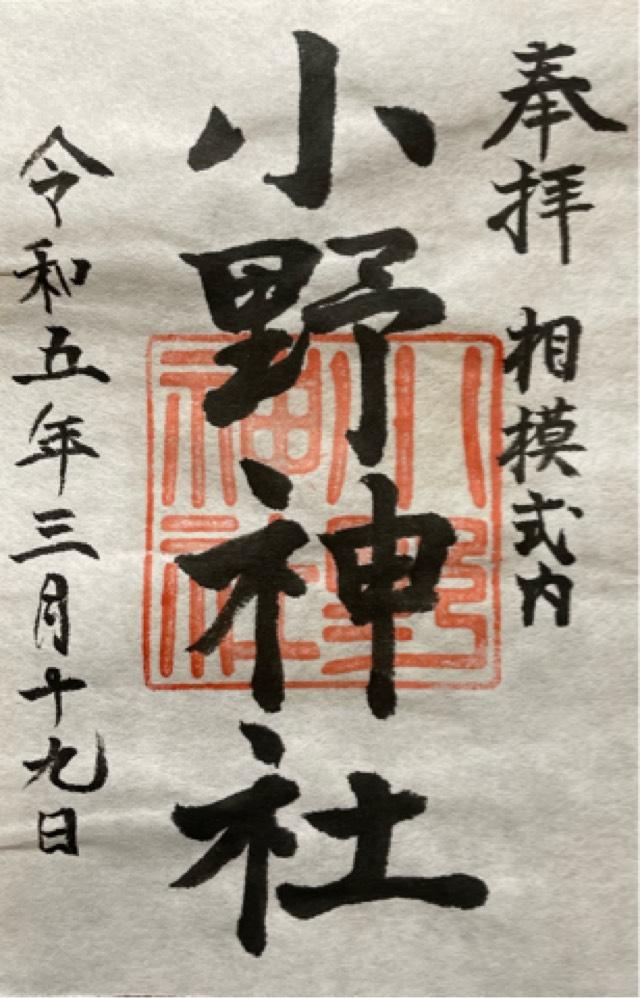 奉拝 相模式内
小野神社
令和五年三月十九日
小野
神社